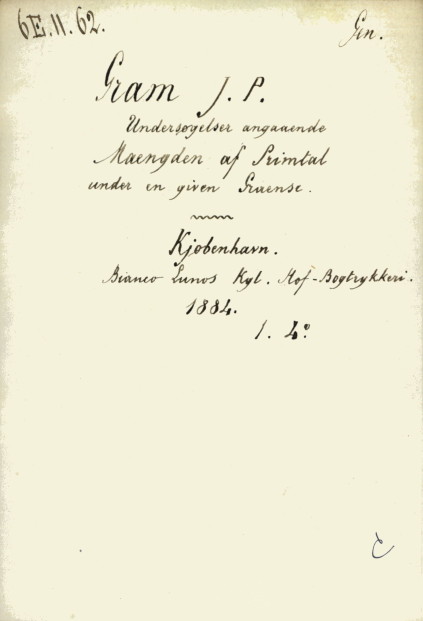 6E.11.62.
Gen.
Gram J. P.
Undersøgelser angaaende
Maengden af Primtal
under en given Graense.
Kjobenhavn.
Bianco Lunos Kgl. Hof-Bogtrykkeri.
1884.
1. 4º